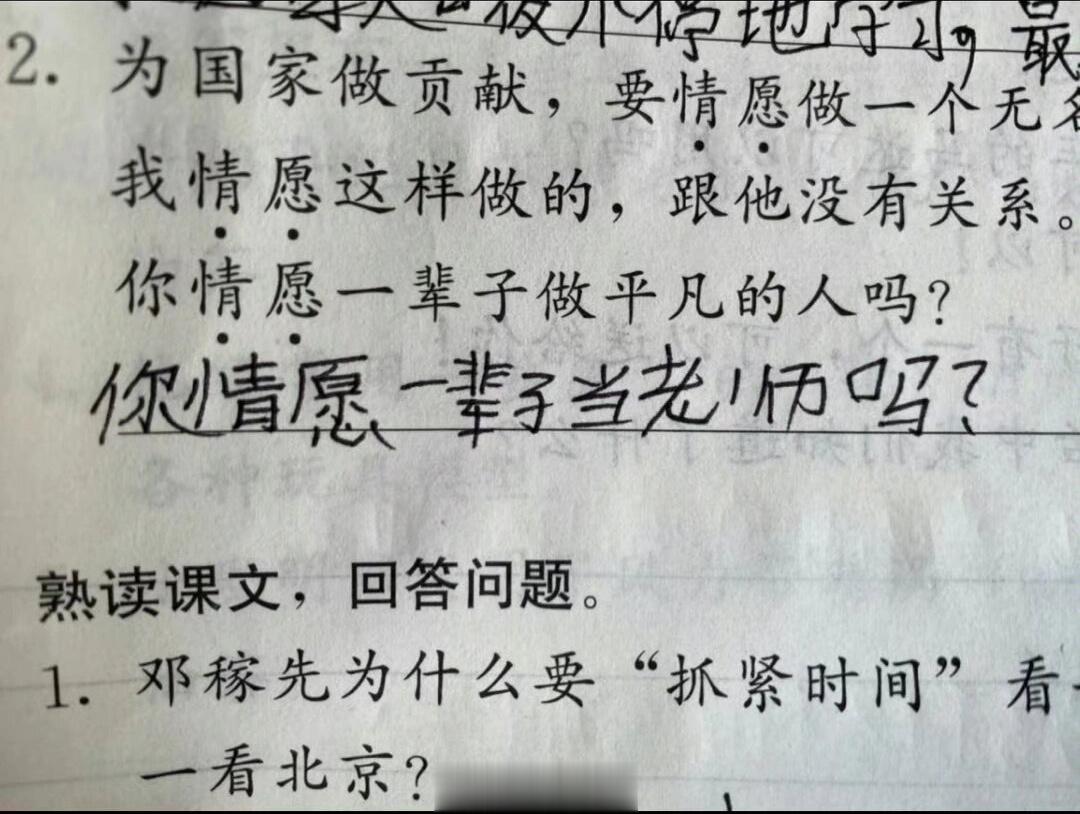 夜不停地学习，最
2. 为国家做贡献，要情愿做一个无名
我情愿这样做的，跟他没有关系。
你情愿一辈子做平凡的人吗？
你情愿一辈子当老师吗？
熟读课文，回答问题。
1. 邓稼先为什么要“抓紧时间”看
一看北京？